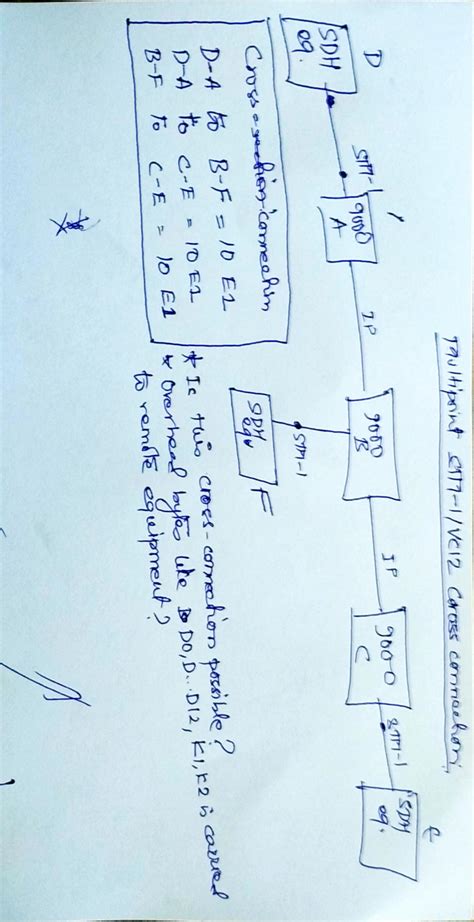 Multipoint STM-1/VC12 Cross connection
D
SDH
eq.
STM-1
9000
A
IP
9000
B
IP
9000
C
STM-1
SDH
eq.
E
STM-1
SDH
eqv
F
Cross-section connection
D-A to B-F = 10 E1
D-A to C-E = 10 E1
B-F to C-E = 10 E1
* Is this cross-connection possible?
* Overhead bytes like D0, D...D12, K1, K2 is carried
to remote equipment?